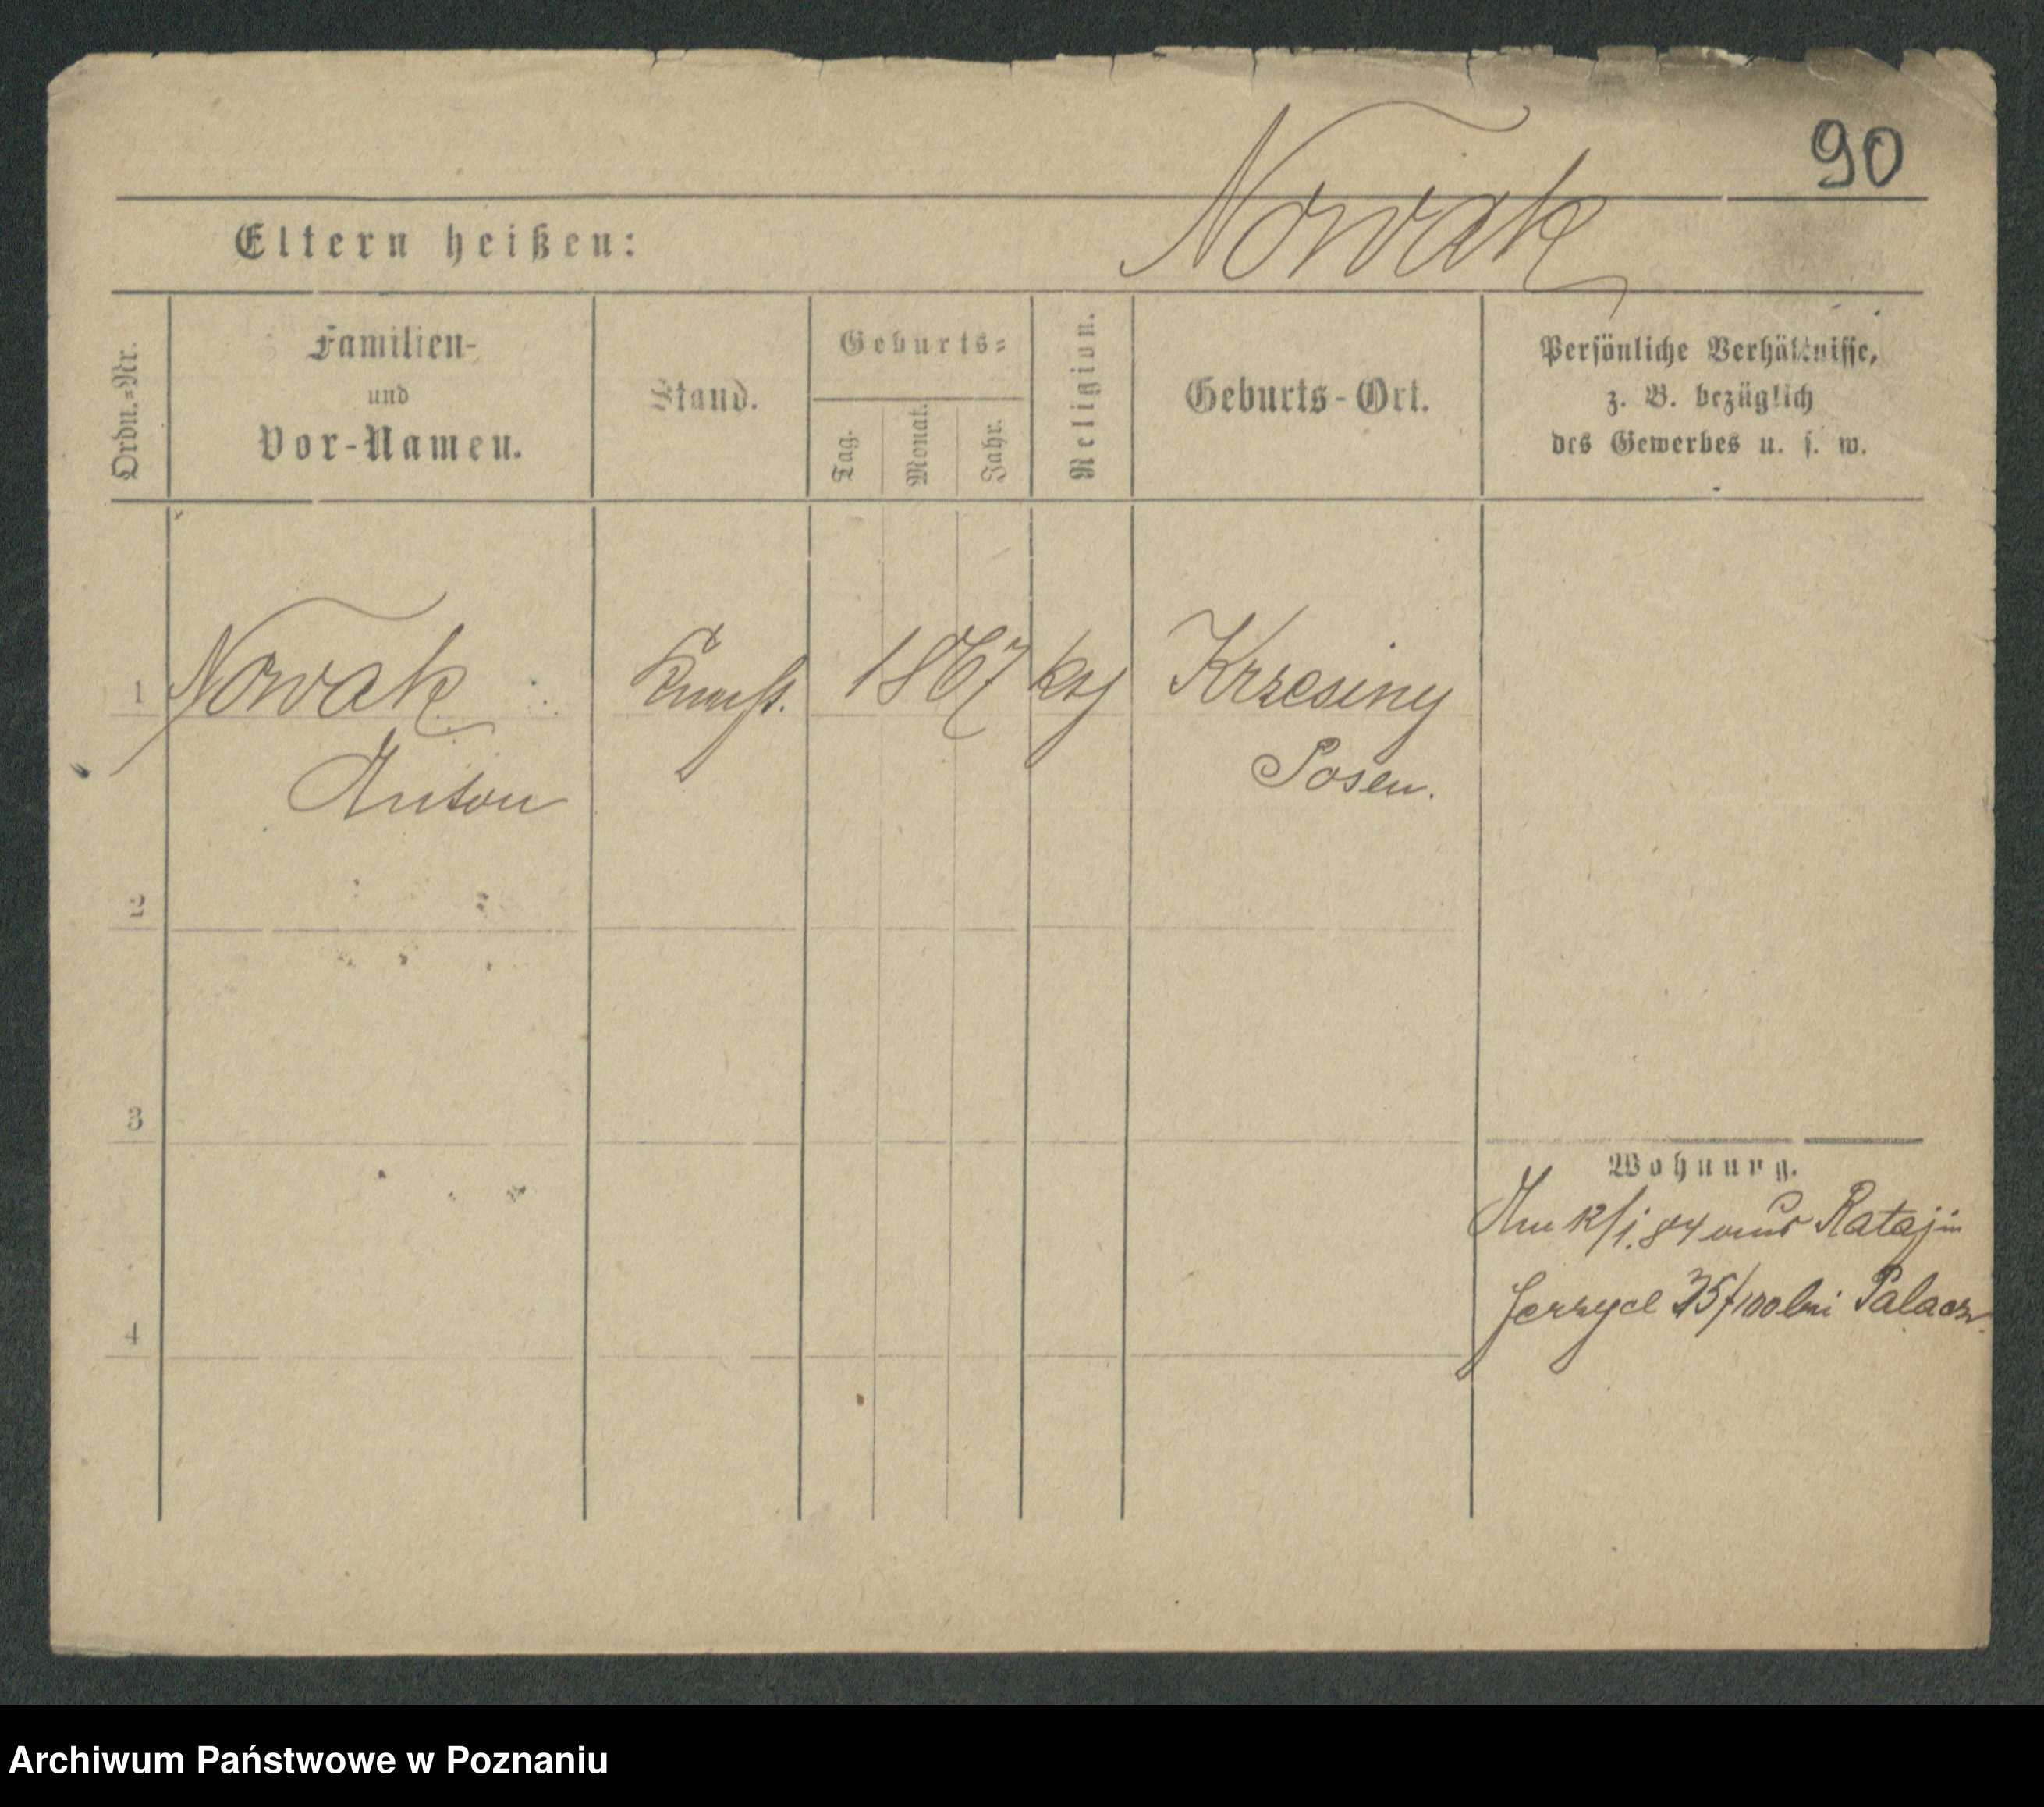 90
Nowak
Eltern heißen:
Ordn.=Nr.
Familien-
und
Vor-Namen.
Stand.
Geburts=
Tag.
Monat.
Jahr.
Religion.
Geburts-Ort.
Persönliche Verhältnisse,
z. B. bezüglich
des Gewerbes u. s. w.
1 Nowak 1867 Krzesiny
Anton Posen.
2
3
Wohnung.
Rataj in
Jerzyce 35/100 bei Palacz.
4
Archiwum Państwowe w Poznaniu